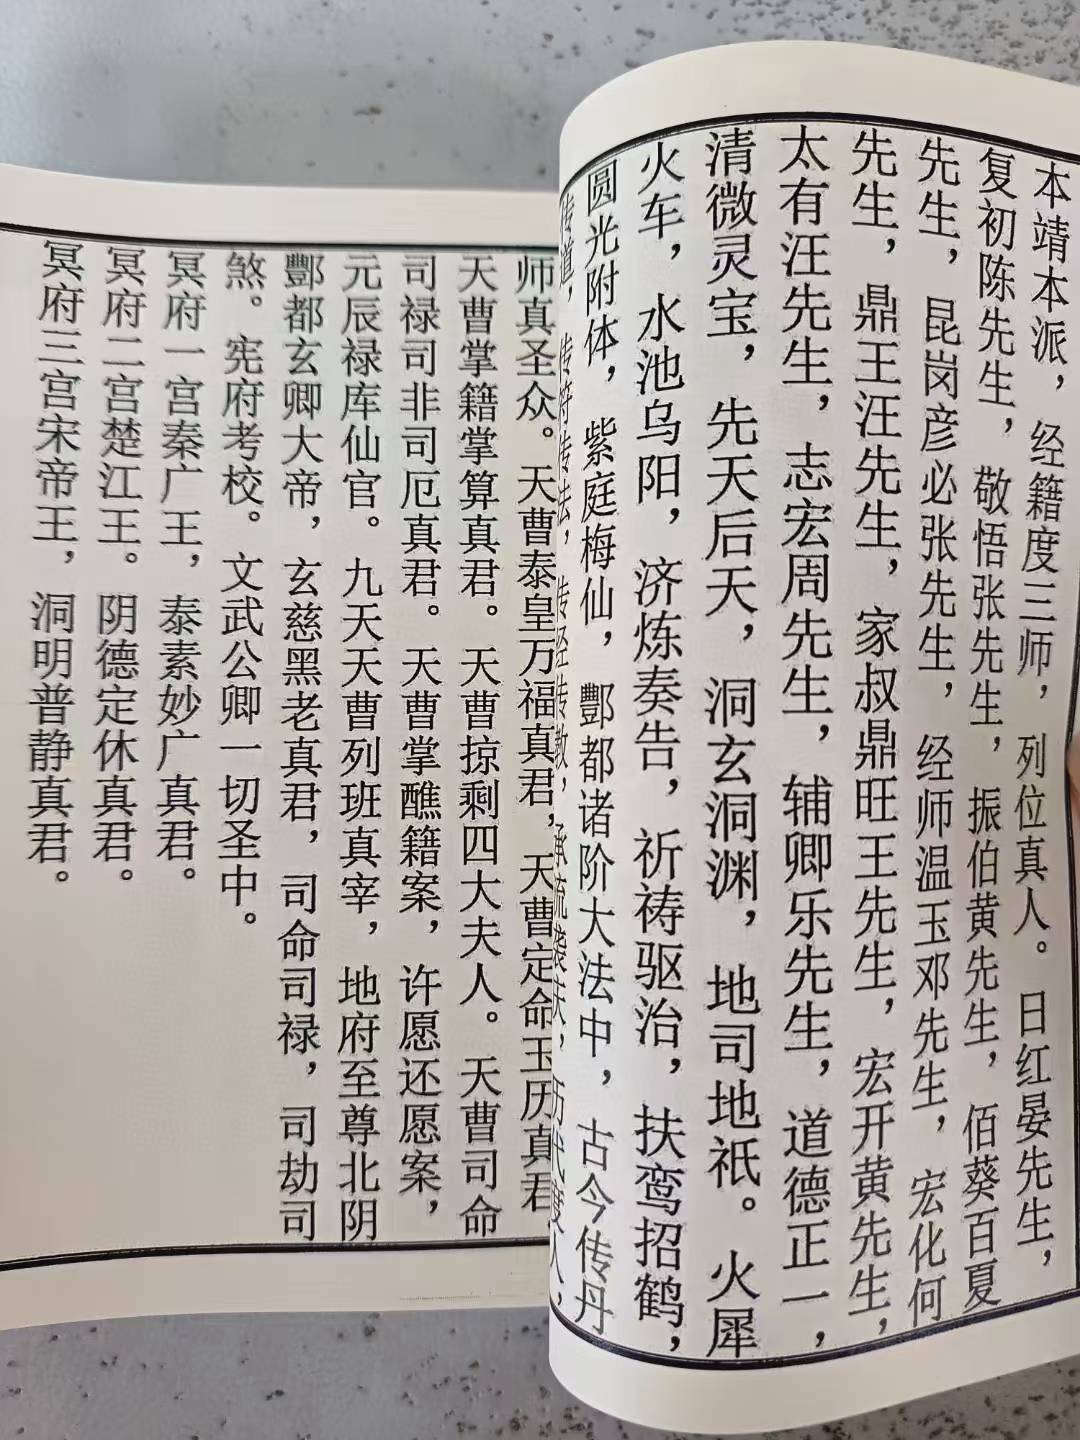 本靖本派，经籍度三师，列位真人。日红晏先生，
复初陈先生，敬悟张先生，振伯黄先生，佰葵百夏
先生，昆岗彦必张先生，经师温玉邓先生，宏化何
先生，鼎王汪先生，家叔鼎旺王先生，宏开黄先生，
太有汪先生，志宏周先生，辅卿乐先生，道德正一，
清微灵宝，先天后天，洞玄洞渊，地司地祇。火犀
火车，水池乌阳，济炼奏告，祈祷驱治，扶鸾招鹤，
圆光附体，紫庭梅仙，酆都诸阶大法中，古今传丹
传道，传符传法，传经传教，承流袭庆，历代度人，
师真圣众。天曹泰皇万福真君，天曹定命玉历真君，
天曹掌籍掌算真君。天曹掠剩四大夫人。天曹司命
司禄司非司厄真君。天曹掌醮籍案，许愿还愿案，
元辰禄库仙官。九天天曹列班真宰，地府至尊北阴
酆都玄卿大帝，玄慈黑老真君，司命司禄，司劫司
煞。宪府考校。文武公卿一切圣中。
冥府一宫秦广王，泰素妙广真君。
冥府二宫楚江王。阴德定休真君。
冥府三宫宋帝王，洞明普静真君。